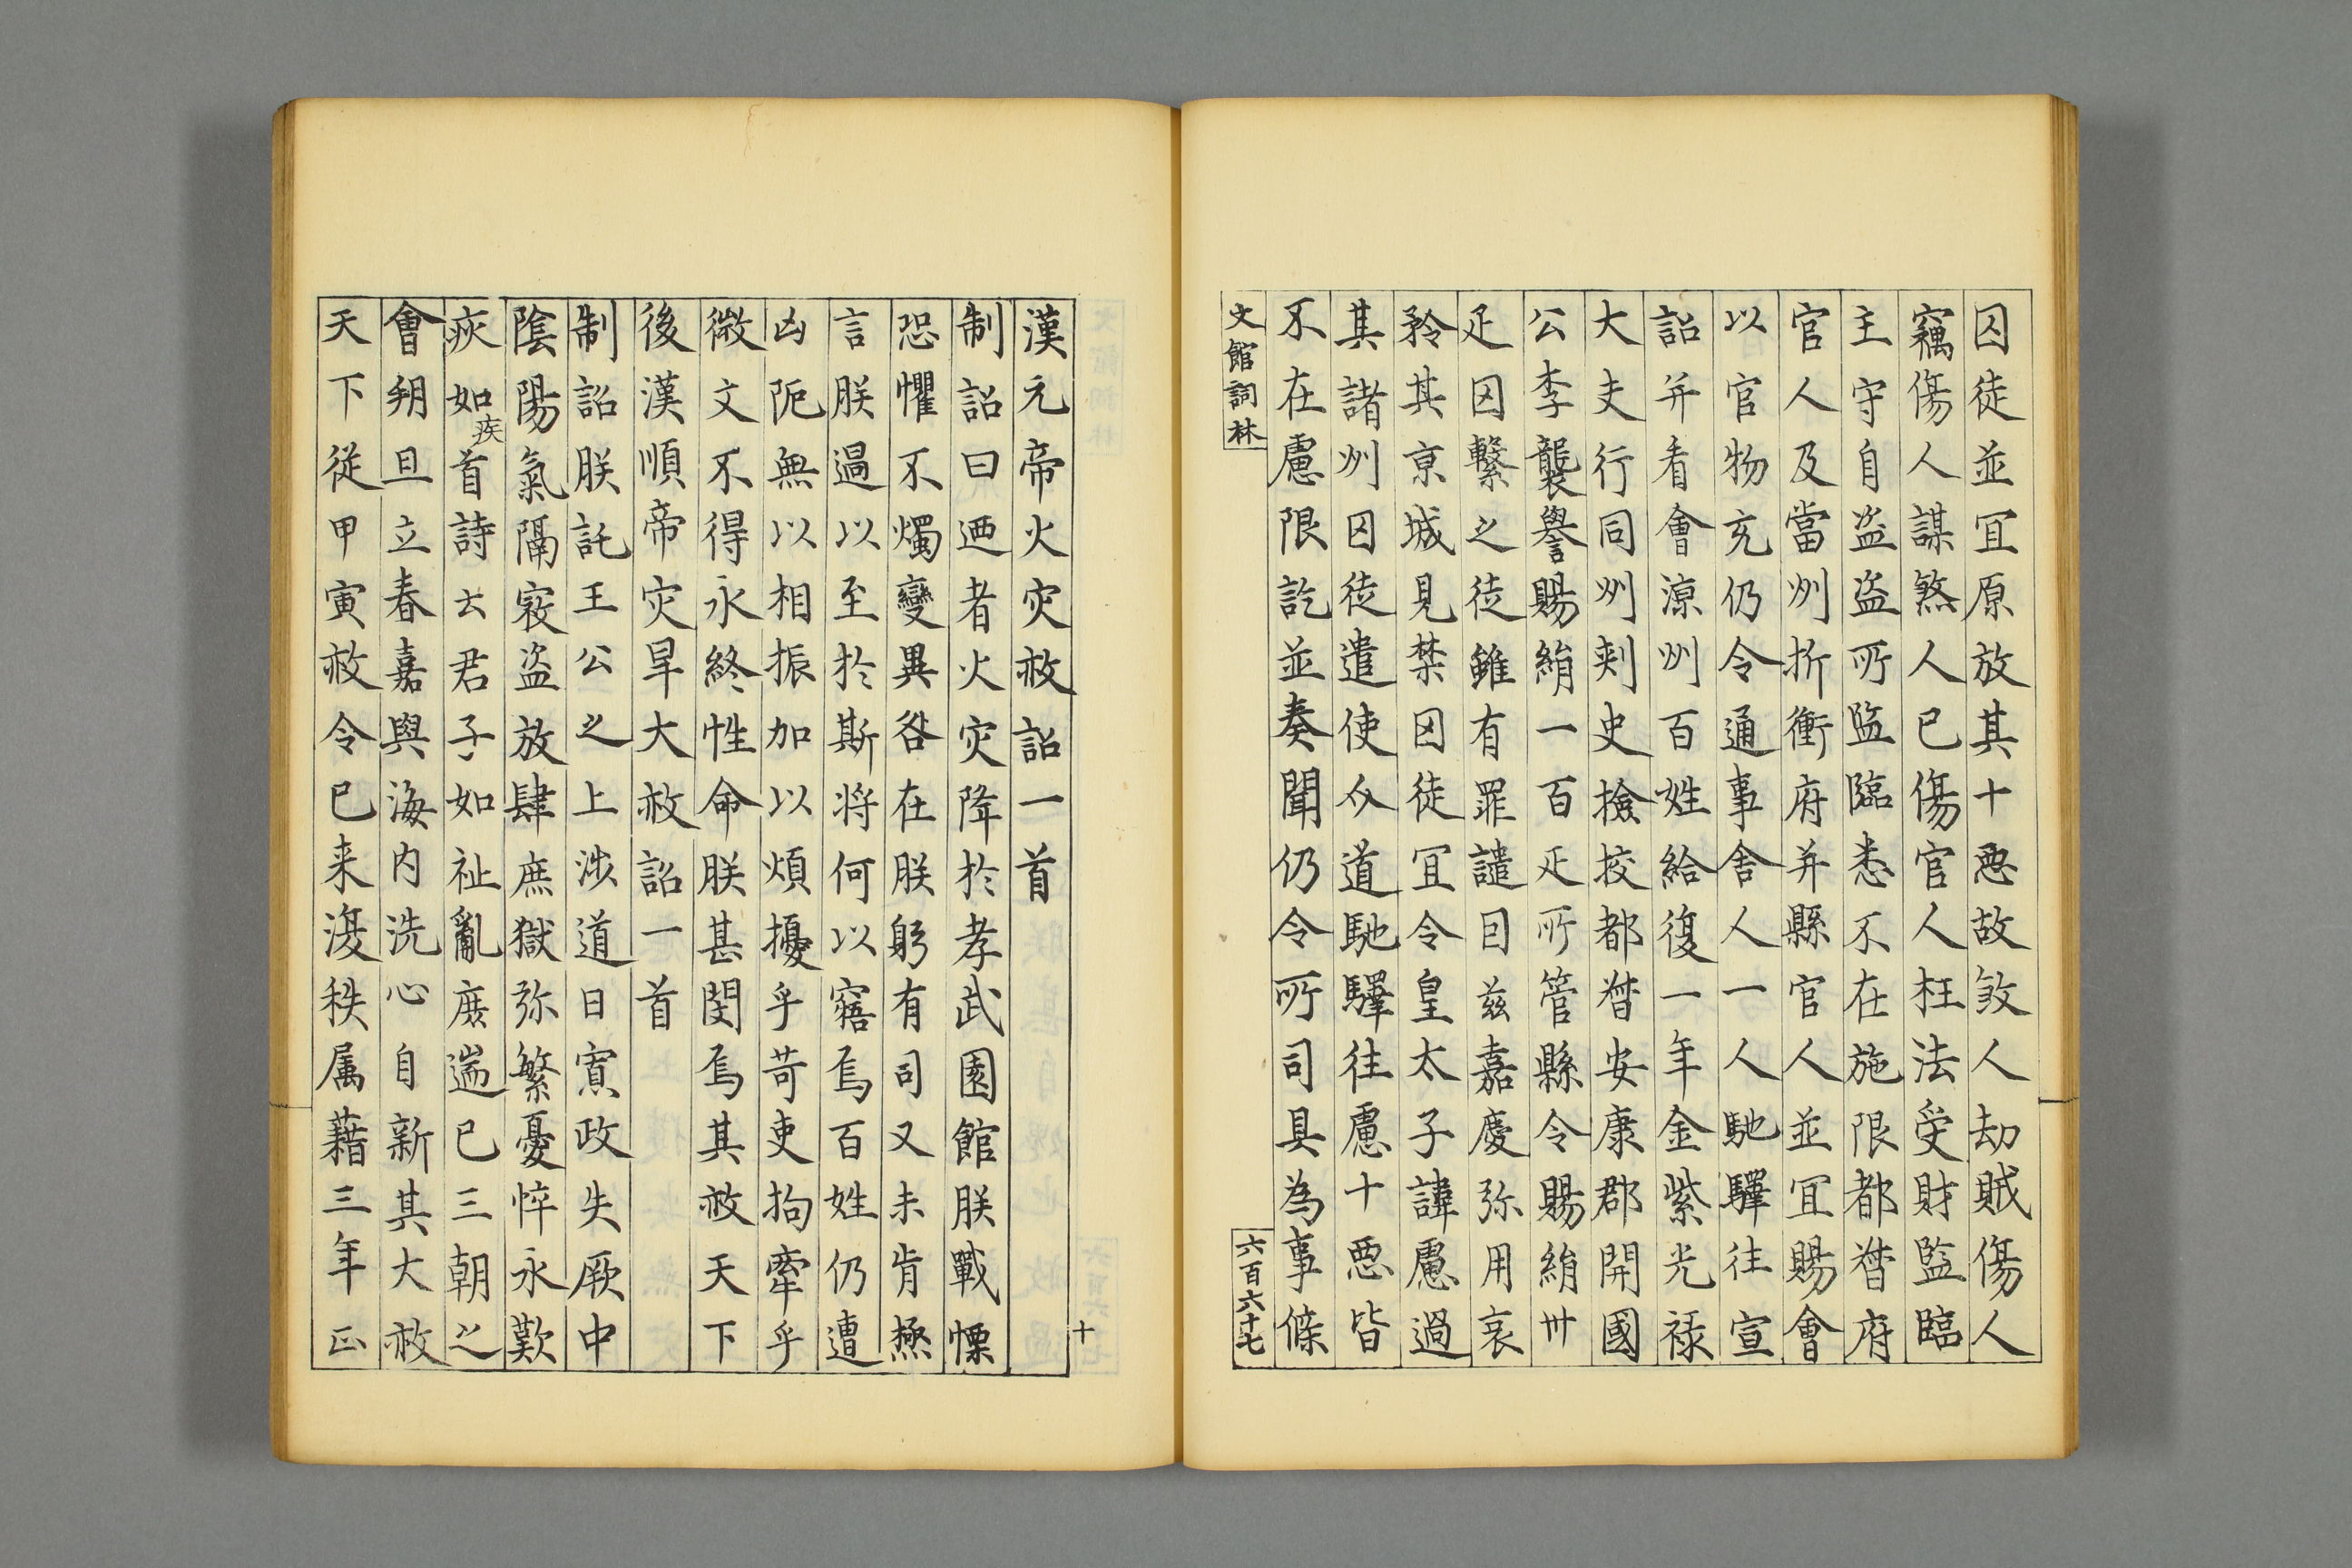 囚徒並冝原放其十惡故煞人劫賊傷人
竊傷人謀煞人人已傷官人枉法受財監臨
主守自盗盗所監臨悉不在施限都督府
官人及當州折衝府并縣官人並冝賜會
以官物充仍令通事舎人一人馳驛往宣
詔并看會涼州百姓給復一年金紫光禄
大夫行同州刾史撿挍都督安康郡開國
公李襲譽賜絹一百疋所管縣令賜絹卅
疋囚繫之徒雖有罪譴囙兹嘉慶弥用哀
矜其京城見禁囚徒冝令皇太子諱慮過
其諸州囚徒遣使分道馳驛往慮十惡皆
不在慮限訖並奏聞仍令所司具為事條
文館詞林
六百六十七
十
漢元帝火灾赦詔一首
制詔曰迺者火灾降於孝武園館朕戰慄
恐懼不燭變異咎在朕躬有司又未肯極
言朕過以至於斯将何以寤焉百姓仍遭
凶阨無以相振加以煩擾乎苛吏拘牽乎
微文不得永終性命朕甚閔焉其赦天下
後漢順帝灾旱大赦詔一首
制詔朕託王公之上涉道日寡政失厥中
陰陽氣隔寇盗放肆庶獄弥繁憂悴永歎
疢如疾首詩云君子如祉亂庶遄已三朝之
會朔旦立春嘉與海内洗心自新其大赦
天下従甲寅赦令已来復秩属藉三年正